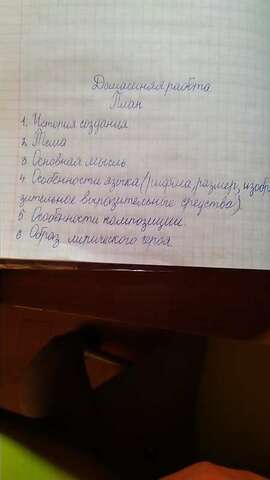 Домашняя работа
План
1. История создания
2. Тема
3. Основная мысль
4. Особенности языка (рифма, размер, изобра
зительное выразительные средства).
5. Особенности композиции.
6. Образ лирического героя.